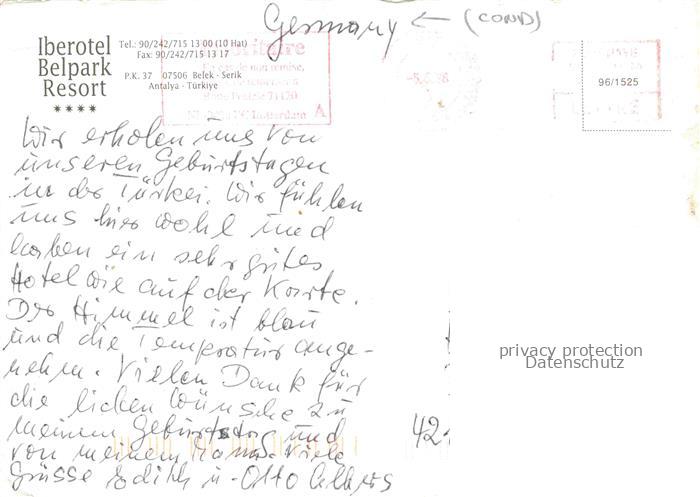 Germany ← (COND)
Iberotel
Belpark
Resort
Tel.: 90/242/715 13 00 (10 Hat)
Fax: 90/242/715 13 17
P.K. 37 07506 Belek - Serik
Antalya - Türkiye
En cas de non remise,
A
96/1525
Wir erholen uns von
unseren Geburtstagen
in der Türkei. Wir fühlen
uns hier wohl und
haben ein sehr gutes
Hotel wie auf der Karte.
Der Himmel ist blau
und die Temperatur ange-
nehm. Vielen Dank für
die lieben Wünsche zu
meinem Geburtstag und
von meinem Mann. Viele
Grüsse Edith u. Otto
42
privacy protection
Datenschutz